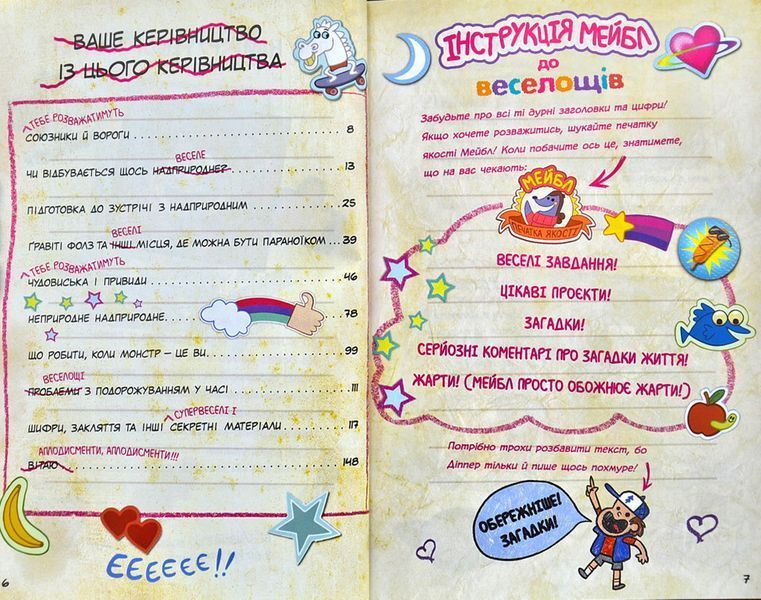 ВАШЕ КЕРІВНИЦТВО
ІЗ ЦЬОГО КЕРІВНИЦТВА
ТЕБЕ РОЗВАЖАТИМУТЬ
СОЮЗНИКИ Й ВОРОГИ ........ 8
ВЕСЕЛЕ
ЧИ ВІДБУВАЄТЬСЯ ЩОСЬ НАДПРИРОДНЕ? ........ 13
ПІДГОТОВКА ДО ЗУСТРІЧІ З НАДПРИРОДНИМ ........ 25
ВЕСЕЛІ
ҐРАВІТІ ФОЛЗ ТА ІНШІ МІСЦЯ, ДЕ МОЖНА БУТИ ПАРАНОЇКОМ ... 39
ТЕБЕ РОЗВАЖАТИМУТЬ
ЧУДОВИСЬКА І ПРИВИДИ ........ 46
НЕПРИРОДНЕ НАДПРИРОДНЕ ........ 78
ЩО РОБИТИ, КОЛИ МОНСТР – ЦЕ ВИ ........ 99
ВЕСЕЛОЩІ
ПРОБЛЕМИ З ПОДОРОЖУВАННЯМ У ЧАСІ ........ 111
СУПЕРВЕСЕЛІ І
ШИФРИ, ЗАКЛЯТТЯ ТА ІНШІ СЕКРЕТНІ МАТЕРІАЛИ ........ 117
АПЛОДИСМЕНТИ, АПЛОДИСМЕНТИ!!!
ВІТАЮ ........ 148
ЕЕЕЕЕЕ!!
6
ІНСТРУКЦІЯ МЕЙБЛ
ДО
ВЕСЕЛОЩІВ
Забудьте про всі ті дурні заголовки та цифри!
Якщо хочете розважитись, шукайте печатку
якості Мейбл! Коли побачите ось це, знатимете,
що на вас чекають:
МЕЙБЛ
ПЕЧАТКА ЯКОСТІ
ВЕСЕЛІ ЗАВДАННЯ!
ЦІКАВІ ПРОЄКТИ!
ЗАГАДКИ!
СЕРЙОЗНІ КОМЕНТАРІ ПРО ЗАГАДКИ ЖИТТЯ!
ЖАРТИ! (МЕЙБЛ ПРОСТО ОБОЖНЮЄ ЖАРТИ!)
Потрібно трохи розбавити текст, бо
Діппер тільки й пише щось похмуре!
ОБЕРЕЖНІШЕ!
ЗАГАДКИ!
7